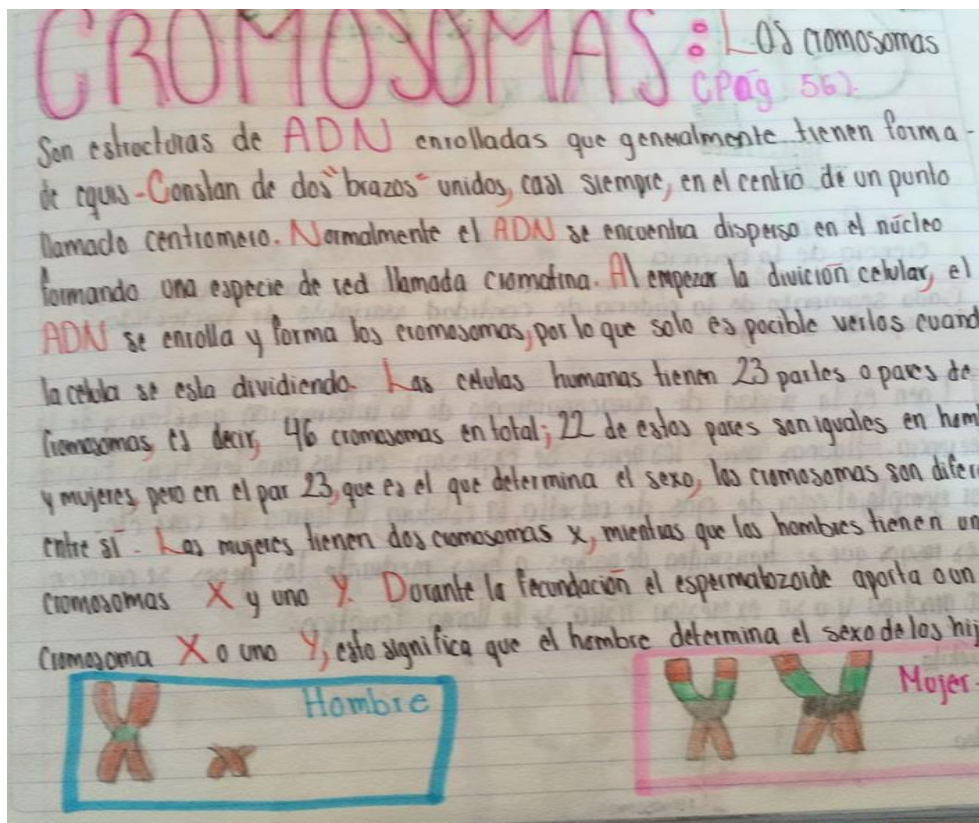 CROMOSOMAS: Los cromosomas
(Pág 56).
Son estructuras de ADN enrolladas que generalmente tienen forma
de equis-Constan de dos "brazos" unidos, casi siempre, en el centro de un punto
llamado centromero. Normalmente el ADN se encuentra disperso en el núcleo
formando una especie de red llamada cromatina. Al empezar la divición celular, el
ADN se enrolla y forma los cromosomas, por lo que solo es pocible verlos cuand
la celula se esta dividiendo. Las celulas humanas tienen 23 partes o pares de
Cromosomas, es decir, 46 cromosomas en total; 22 de estos pares son iguales en hom
y mujeres, pero en el par 23, que es el que determina el sexo, los cromosomas son difer
entre sí. Las mujeres tienen dos cromosomas x, mientras que los hombres tienen un
cromosomas X y uno Y. Durante la fecundación el espermatozoide aporta o un
Cromosoma X o uno Y, esto significa que el hombre determina el sexo de los hij
Hombre
Mujer.